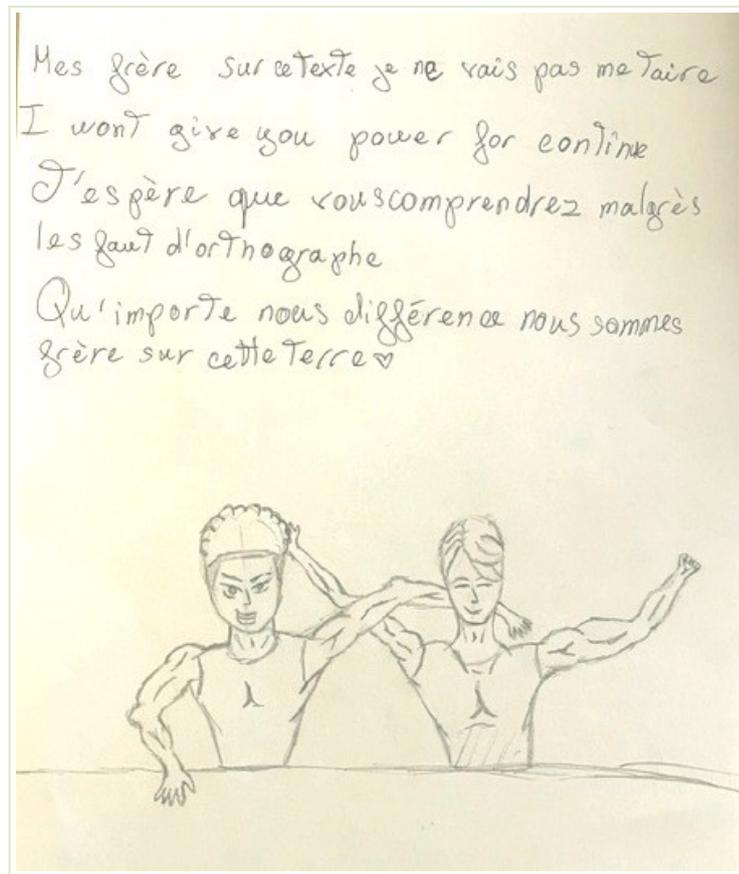 Mes frère sur ce texte je ne vais pas me taire
I wont give you power for continue
J'espère que vous comprendrez malgrès
les faut d'orthographe
Qu'importe nous différence nous sommes
frère sur cette terre ♡